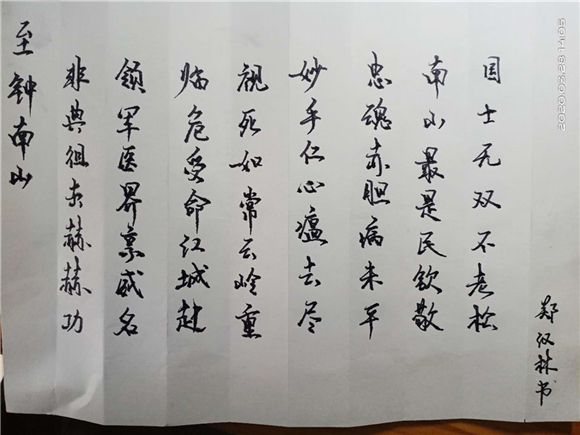 至钟南山
非典徂去赫赫功
领军医界禀威名
临危受命江城赴
视死如常云岭重
妙手仁心瘟去尽
忠魂赤胆病来平
南山最是民钦敬
国士无双不老松
郑汉林书
2020.02.28 14:05